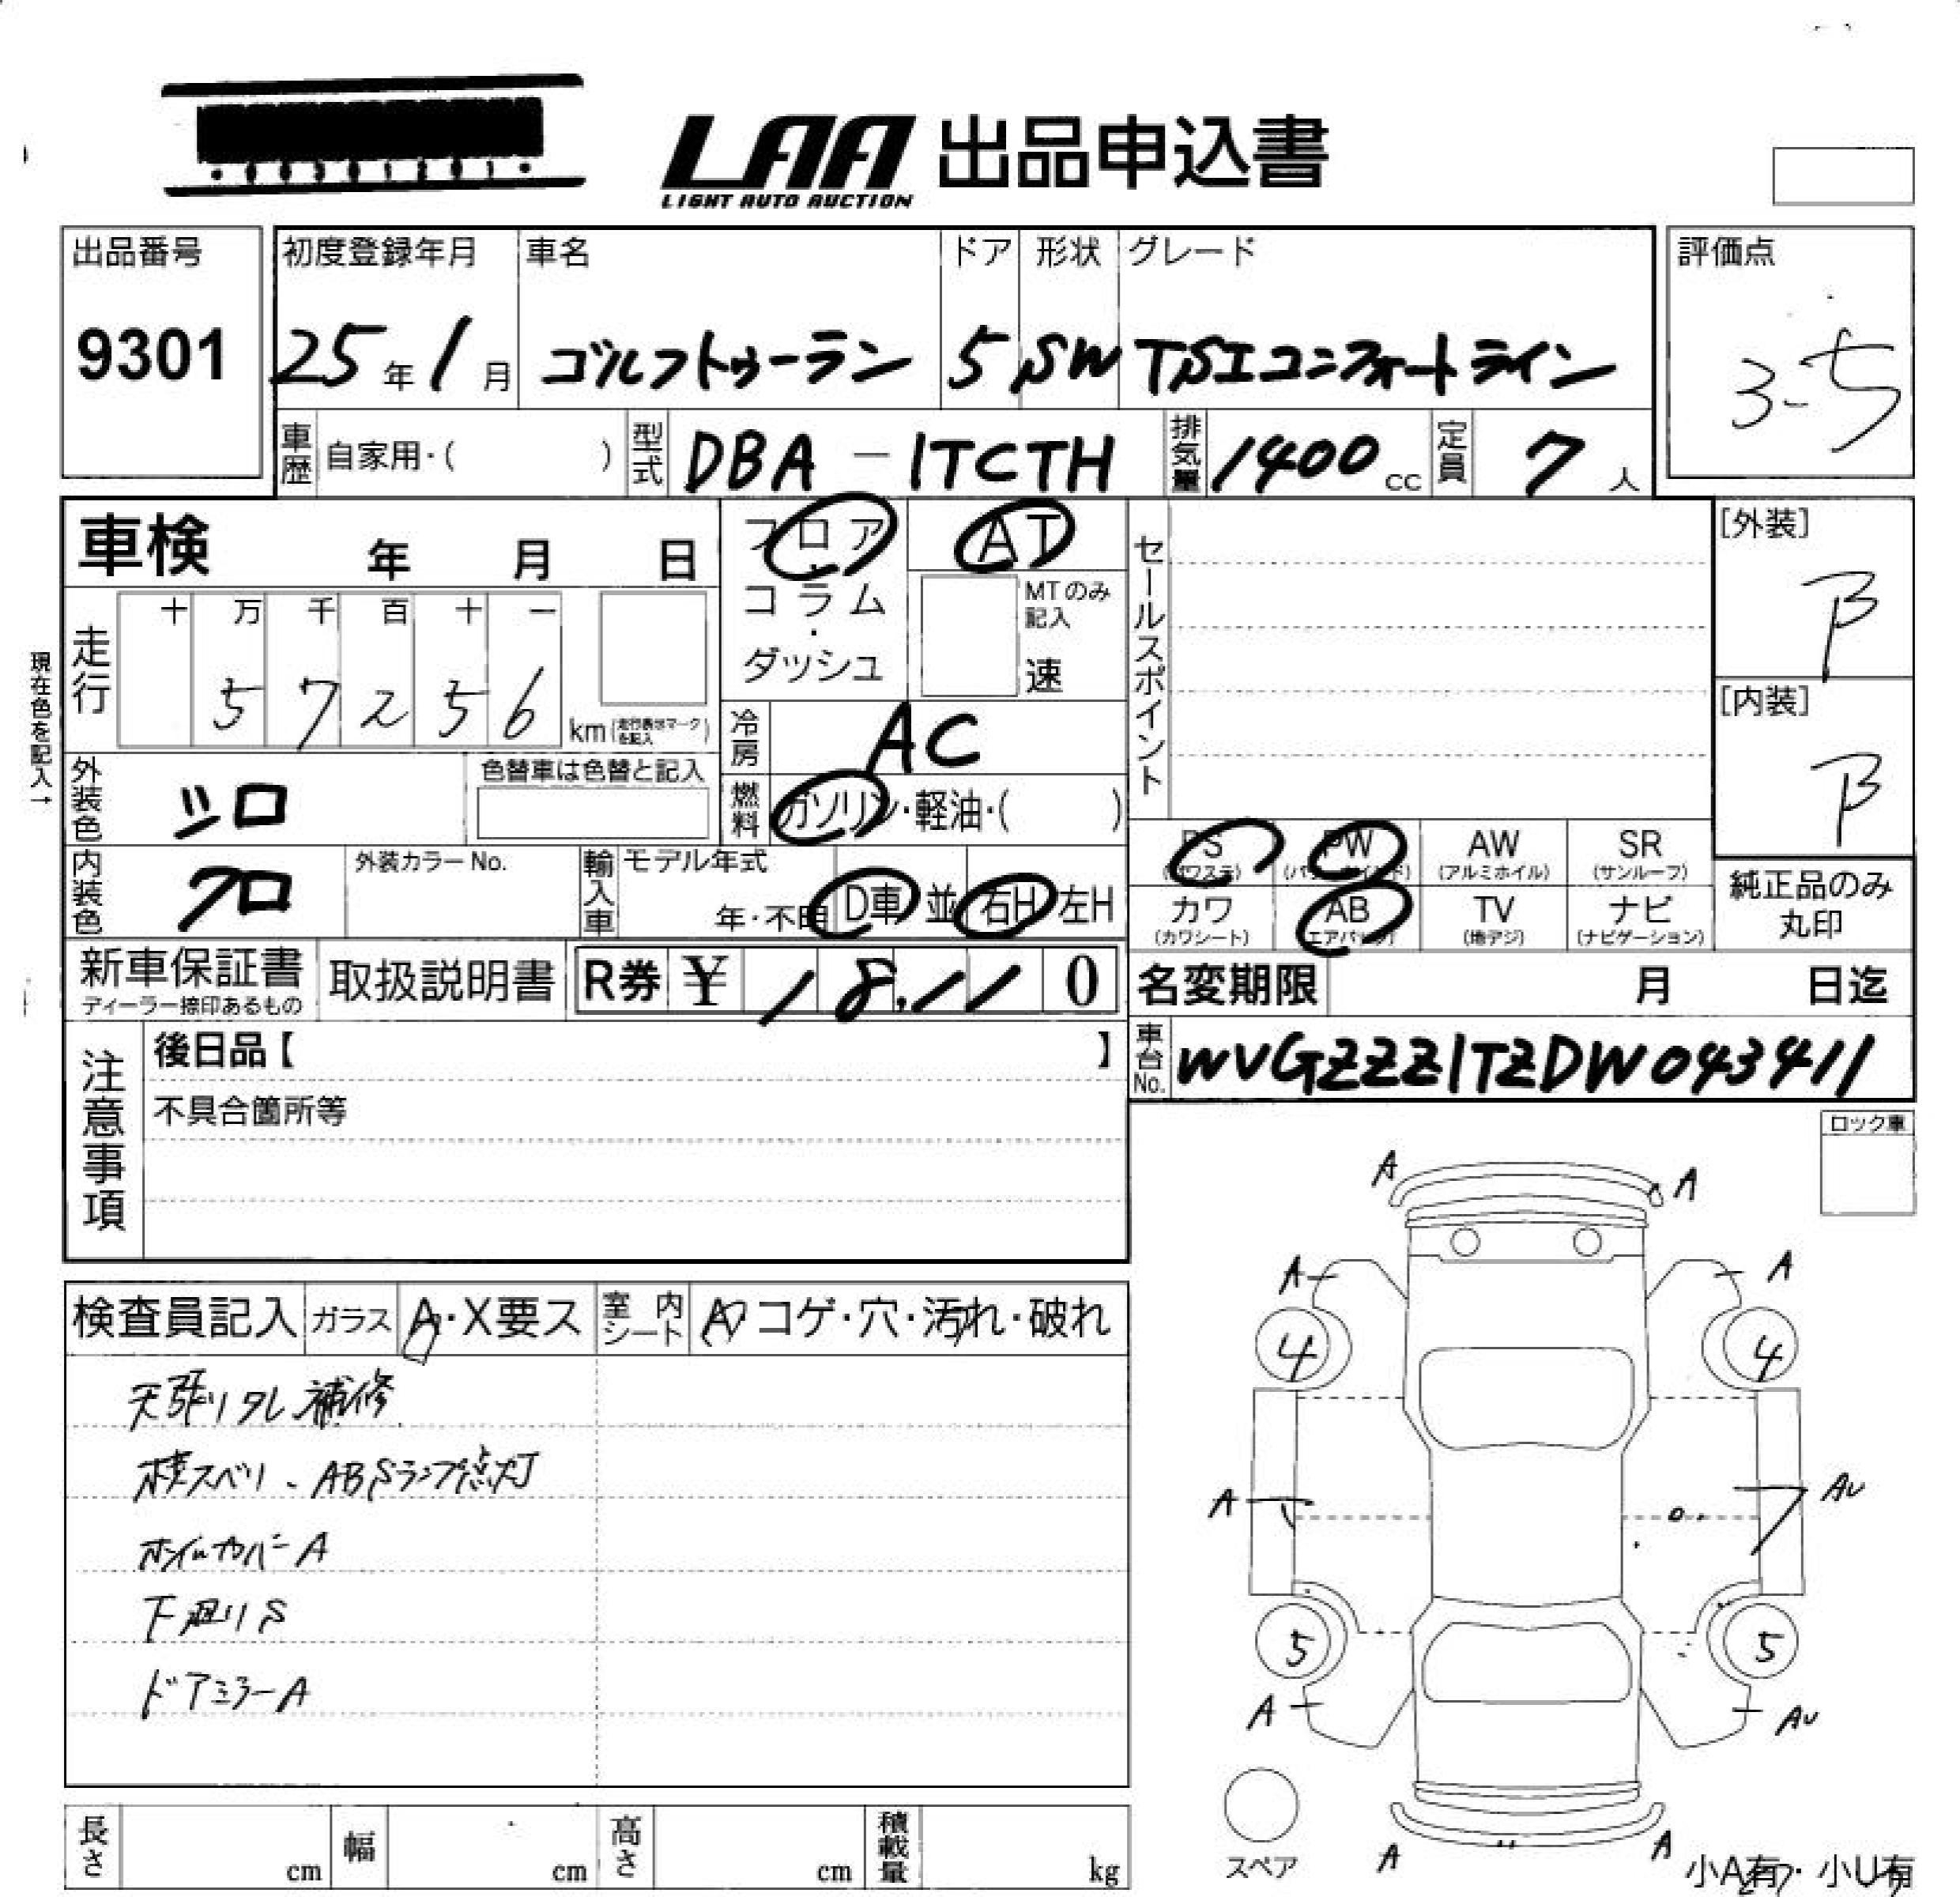 LAA 出品申込書
LIGHT AUTO AUCTION
出品番号
9301
初度登録年月
25年1月
車名
ゴルフトゥーラン
ドア
5
形状
SW
グレード
TSIコンフォートライン
評価点
3-5
車歴 自家用・( )
型式 DBA-1TCTH
排気量 1400cc
定員 7人
車検 年 月 日
フロア・コラム・ダッシュ
AT
MTのみ記入
速
セールスポイント
[外装]
B
[内装]
B
現在色を記入→
走行
十 万 千 百 十 一
5 7 2 5 6
km(走行表示マークを記入)
冷房 AC
外装色 シロ
色替車は色替と記入
燃料 ガソリン・軽油・( )
内装色 クロ
外装カラーNo.
輸入車
モデル年式
年・不明
D車 並 右H 左H
PS(パワステ) PW(パワーウインド) AW(アルミホイル) SR(サンルーフ)
カワ(カワシート) AB(エアバッグ) TV(地デジ) ナビ(ナビゲーション)
純正品のみ丸印
新車保証書
ディーラー捺印あるもの
取扱説明書
R券 ¥ 18,110
名変期限 月 日迄
車台No. WVGZZZ1TZDW043411
注意事項
後日品【 】
不具合箇所等
ロック車
検査員記入 ガラス A・X要ス 室内シート コゲ・穴・汚れ・破れ
天張りタレ補修
検スベリ、ABSランプ点灯
ホイルカバーA
下廻りS
ドアミラーA
A A
A A
4 4
A AU
5 5
A AU
A A
スペア
小A有・小U有
長さ cm 幅 cm 高さ cm 積載量 kg